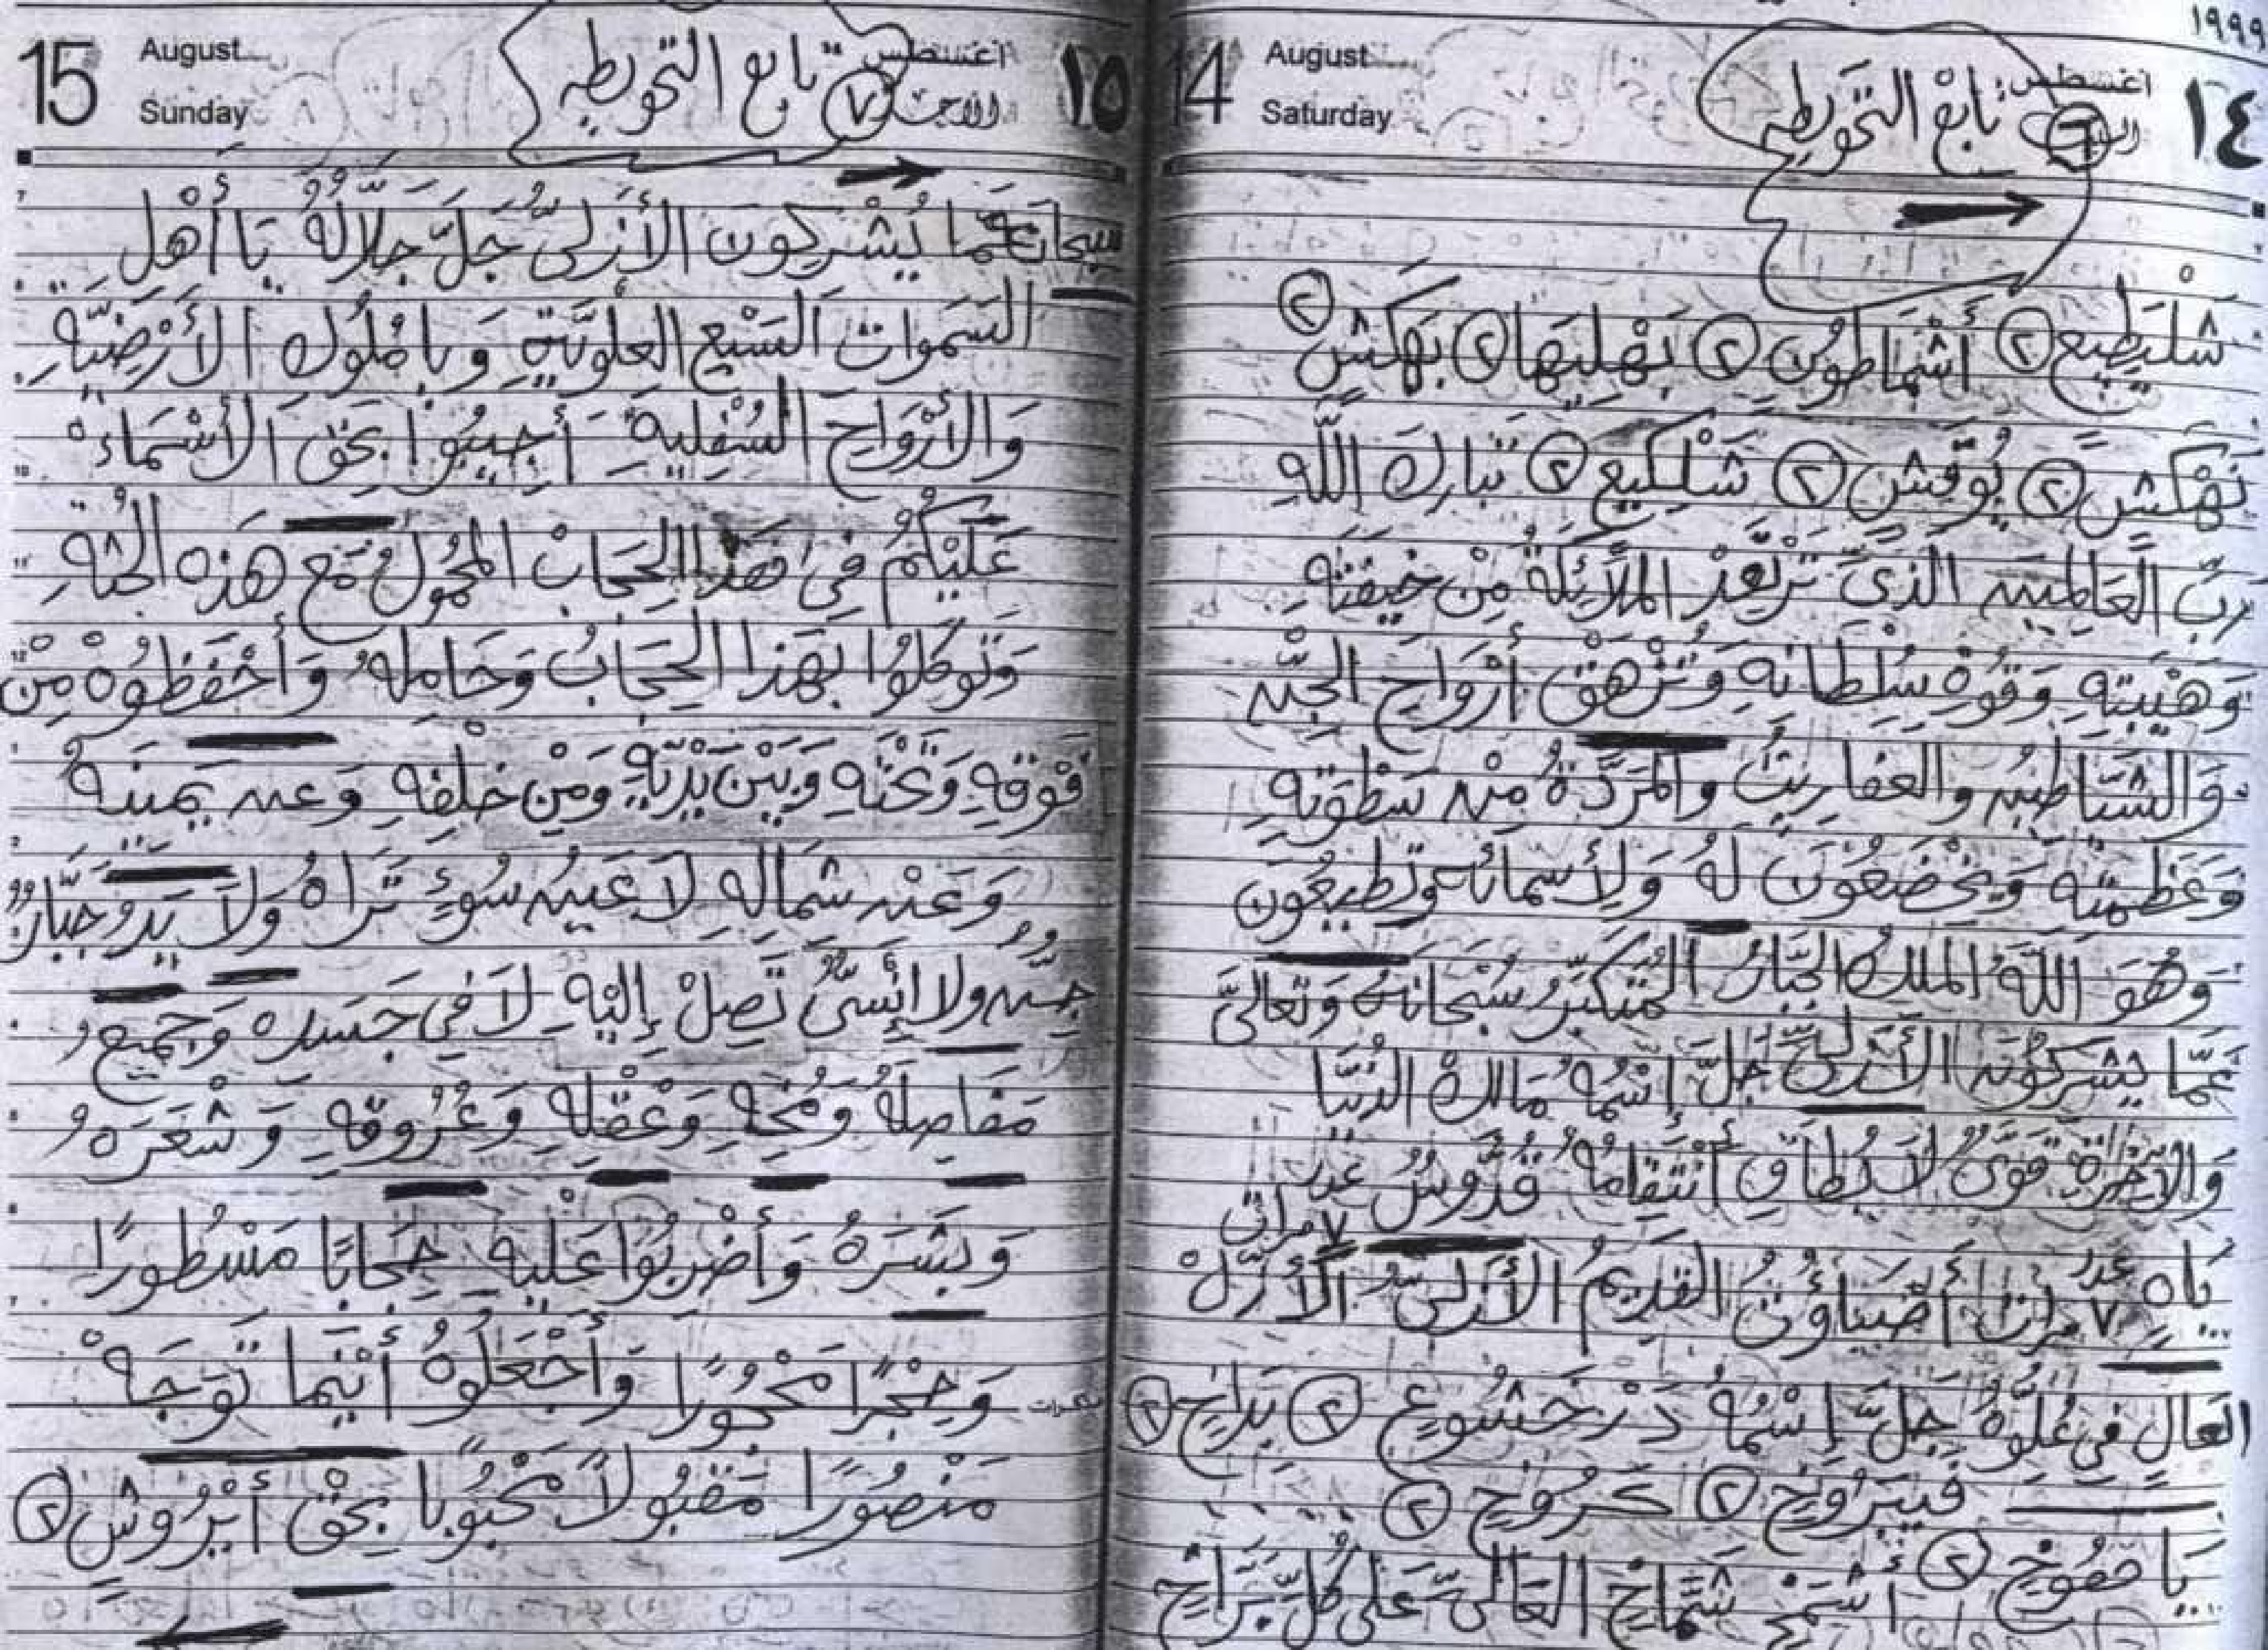 ١٩٩٩
١٤ اغسطس August 14
السبت Saturday
تابع التحويطه ٦
شَلْيَطِيع ٢ أَشْمَاطُون ٢ بَهْلَيَهَا ٢ بَهْكَش ٢
نَهْكَش ٢ يُوقَش ٢ شَلْكِيع ٢ تبارك اللَّهِ
ربّ العَالمين الذي تَرْتَعِدْ الملَائِكَةُ مِنْ خيفَتِهِ
وَهَيْبَتِهِ وَقُوةِ سُلْطَانِهِ وَتُزْهَقْ أَرْوَاحِ الجنّ
وَالشَيَاطين والعفاريتُ والمَرَدَةُ مِنْ سَطْوَتِهِ
وَعَظَمَتِه وَيَخْضَعُونَ لَهُ وَلِأسمائه وتطيعُون
وَهُوَ اللَّهُ الملكُ الجَبّارُ المُتَكَبّرُ سُبْحَانَهُ وَتعَالىَ
عَمّا يشركُون الأَزَلىّ جَلّ إسْمُهُ مَالكْ الدُنْيَا
وَالأخِرَة قَوىُّ لَا يُطَاق أنْتِقَامُهُ قُدّوسُ عدد
٧ مرات
يَاه عدد ٧ مرات أَصْبَاؤُت القَدِيمُ الأَزَلىّ الأَزَلْ
العَالِ فِي عُلُوّهُ جَلّ إسْمُهُ دَرْخَشُوعٍ ٢ بَدَايَخ ٢
فَيبَرَاوِيخ ٢ كَرُوَيخ ٢
يَا خَفُوخٍ ٢ أَشْمَخْ شَمّاخ العَالىِّ عَلى كُلّ بَرَاخٍ
15 August اغسطس ١٥
Sunday الأحد
تابع التحويطه ٧
سبحانه عَمّا يُشْرِكُون الأزَلىّ جَلّ جلَالُهُ يَا أَهْل
السَمَوَات السَبْعِ العلَوِيَّةِ وَيا مُلُوك الأَرْضِيَّةِ
وَالأَرْوَاحِ السُفْلِية أَجِيبُوا بِحَق الأَسْمَاء
عَلَيْكُمْ فِي هَذا الحِجَابْ المحْمُولُ مَع هَذه الجُثه
وَتَوكَلُوا بِهَذا الحِجَابُ وَحَامِلهُ وَأَحْفَظُوهْ مِنْ
فَوْقِهِ وَتَحْتِهِ وَبَيْن يَدَيّهِ وَمِنْ خَلْفِهِ وَعن يَمينه
وَعَنْ شمَالِه لَا عَينُ سُوءٍ تَرَاهُ وَلَا يَدُ جبَّارٌ
جنّ ولا إنْسىٌّ تَصِلْ إِلَيْهِ لَا فِي جَسَده وَجَميع
مَفَاصِلهُ وَمُخِّهِ وَعَقْلِه وَعُرُوقِهِ وَشَعَرَهُ
وَبَشَرَهُ وَأَضْرِبُوا عَلَيه حِجَابًا مَسْطُورًا
وَحِجْرًا مَحْجُورًا وَأجْعَلُوهُ أَيْنَمَا تَوَجَهْ
مَنْصُورًا مَقْبُولًا مَحْبُوبا بِحَق أَبْرُوشٍ ٢